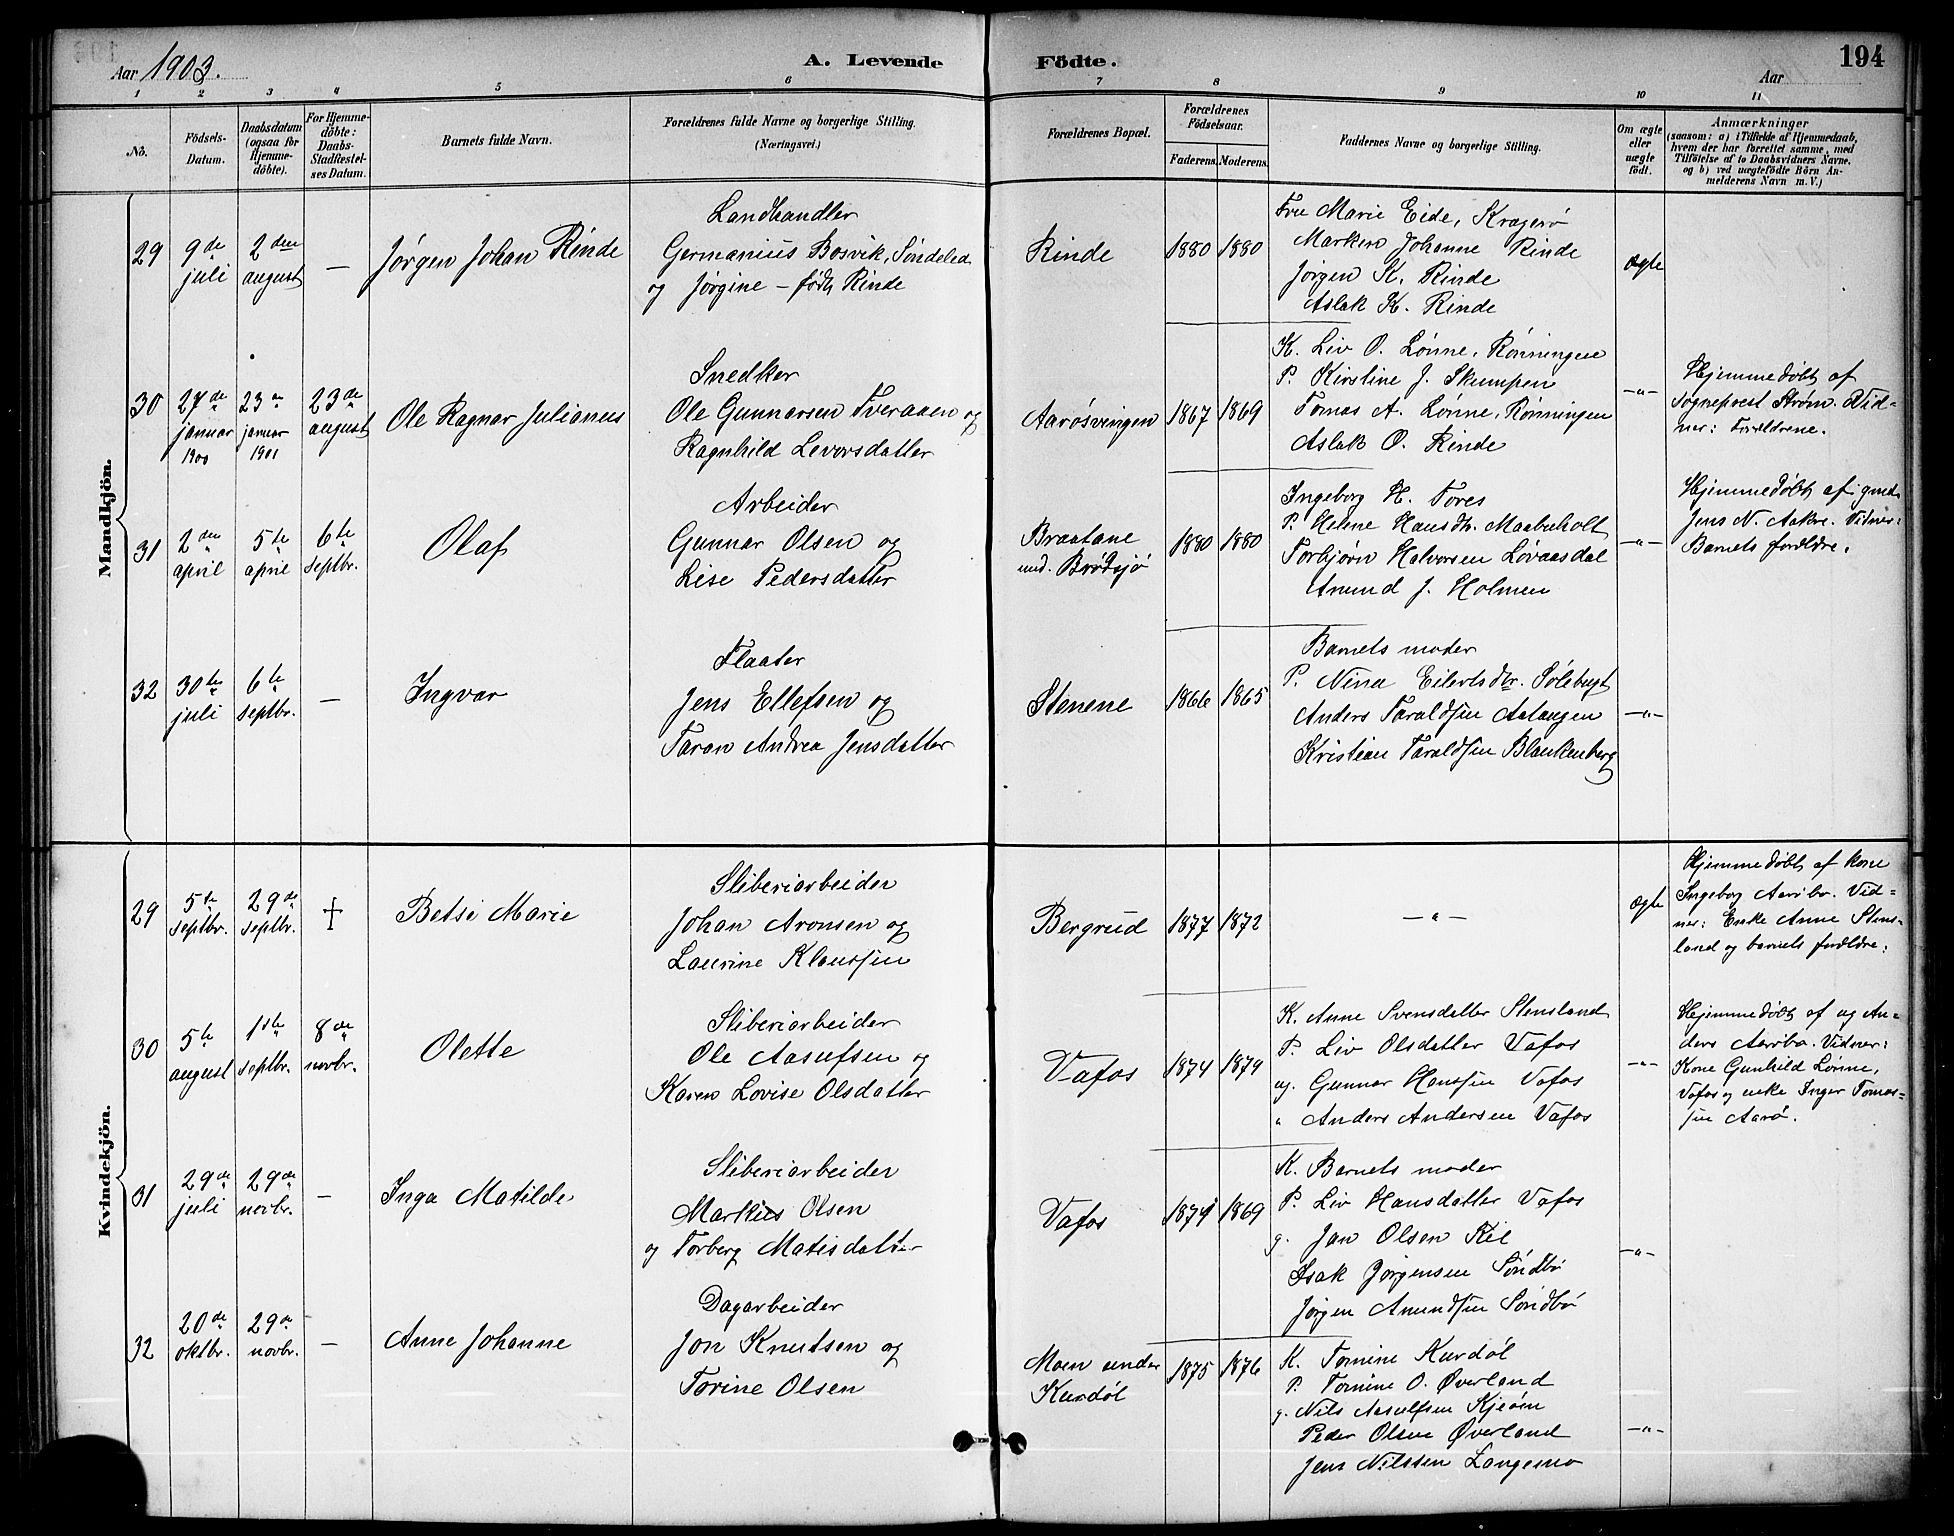 Aar 1903.
A. Levende Födte.
194
Aar
1 2 3 4 5 6 7 8 9 10 11
No.
Fødsels-Datum.
Daabsdatum (ogsaa for Hjemmedöbte).
For Hjemmedöbte: Daabs-Stadfæstelses Datum.
Barnets fulde Navn.
Forældrenes fulde Navne og borgerlige Stilling. (Næringsvei.)
Forældrenes Bopæl.
Forældrenes Födselsaar.
Faderens. Moderens.
Faddernes Navne og borgerlige Stilling.
Om ægte eller uægte födt.
Anmærkninger
(saasom: a) i Tilfælde af Hjemmedaab,
hvem der har forrettet samme, med
Tilföielse af to Daabsvidners Navne,
og b) ved uægtefödte Börn An-
melderens Navn m. V.)
Mandkjön.
29
9de juli
2den august
—
Jørgen Johan Rinde
Landhandler
Germanius Bosvik, Søndeled
og Jørgine – født Rinde
Rinde
1880 1880
Fru Marie Eide, Kragerø
Marken Johanne Rinde
Jørgen K. Rinde
Aslak K. Rinde
ægte
30
27de januar 1900
23de januar 1901
23de august
Ole Ragnar Julianus
Snedker
Ole Gunnarsen Tveraaen og
Ragnhild Levorsdatter
Aarøsvingen
1867 1869
K. Liv O. Lønne, Rønningen
P. Kirstine J. Skumpen
Tomas A. Lønne, Rønningen
Aslak O. Rinde
—"—
Hjemmedøbt af
Sogneprest Strøm. Vid-
ner: Forældrene.
31
2den april
5te april
6te septbr.
Olaf
Arbeider
Gunnar Olsen og
Lise Pedersdatter
Braatane
und. Brødsjø
1880 1880
Ingeborg H. Tores
P. Helene Hansdtr. Maabuholt
Torbjørn Halvorsen Løvaasdal
Anund J. Holmen
—"—
Hjemmedøbt af gmd.
Jens N. Aakre. Vidner:
Barnets forældre.
32
30te juli
6te septbr.
—
Ingvar
Flaater
Jens Ellefsen og
Taran Andrea Jensdatter
Stenene
1866 1865
Barnets moder
P. Nina Eilertsdtr. Sølebugt
Anders Taraldsen Aatangen
Kristian Taraldsen Blankenberg
—"—
Kvindekjön.
29
5te septbr.
29de septbr.
†
Betsi Marie
Sliberiarbeider
Johan Aronsen og
Laurine Klaussen
Bergrud
1877 1872
—"—
ægte
Hjemmedøbt af kone
Ingeborg Aarøbr. Vid-
ner: Enke Anne Stens-
land og barnets forældre.
30
5te august
1ste septbr.
8de novbr.
Olette
Sliberiarbeider
Ole Aasulfsen og
Karen Lovise Olsdatter
Vafos
1874 1879
K. Anne Svensdatter Stensland
P. Liv Olsdatter Vafos
ug. Gunnar Hanssen Vafos
" Anders Andersen Vafos
—"—
Hjemmedøbt af ug An-
ders Aarøbr. Vidner:
Kone Gunhild Lønne,
Vafos og enke Inger Tomas-
sen Aarø.
31
29de juli
29de novbr.
—
Inga Matilde
Sliberiarbeider
Markus Olsen
og Torberg Matisdatter
Vafos
1874 1869
K. Barnets moder
P. Liv Hansdatter Vafos
g. Jan Olsen Kil
Isak Jørgensen Søndbø
Jørgen Anundsen Søndbø
—"—
32
20de oktbr.
29de novbr.
—
Anne Johanne
Dagarbeider
Jon Knutsen og
Torine Olsen
Moen under
Kurdøl
1875 1876
K. Tomine Kurdøl
P. Tomine O. Øverland
g. Nils Aasulfsen Kjeøen
Peder Olsen Øverland
Jens Nilssen Langemo
—"—